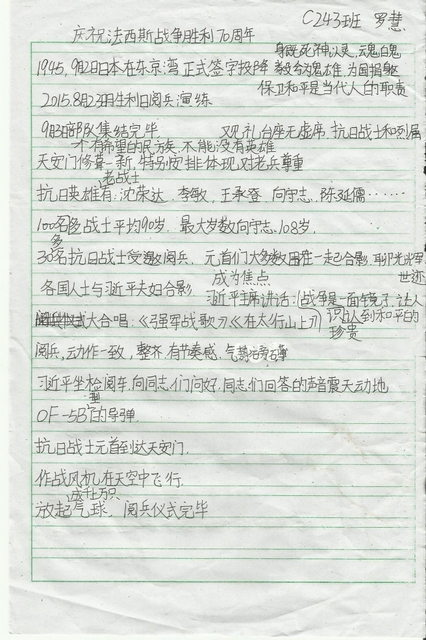 C243班 罗慧
庆祝法西斯战争胜利70周年
身既死神以灵，魂魄
1945，9月2日日本在东京湾正式签字投降 为鬼雄，为国捐躯
保卫和平是当代人的职责
2015.8月23日胜利日阅兵演练
9月3日部队集结完毕 观礼台座无虚席，抗日战士和烈属
一个有希望的民族，不能没有英雄
天安门修葺一新，特别安排体现对老兵尊重
老战士
抗日英雄有：沈荣达，李敏，王承登 向守志，陈延儒……
100名多战士平均90岁，最大岁数向守志，108岁.
多
30名抗日战士受邀阅兵、元首们大多数田在一起合影，
成为焦点
各国人士与习近平夫妇合影， 习近平主席讲话：战争是一面镜子，让人
大合唱：《强军战歌》《在太行山上》 识认到和平的
珍贵
阅兵，动作一致，整齐 有节奏感，气势
习近平坐检阅车，向同志们问好，同志们回答的声音震天动地
型
DF-5B的导弹
抗日战士元首到达天安门，
作战风机在天空中飞行.
成千上万只
放起气球，阅兵仪式完毕